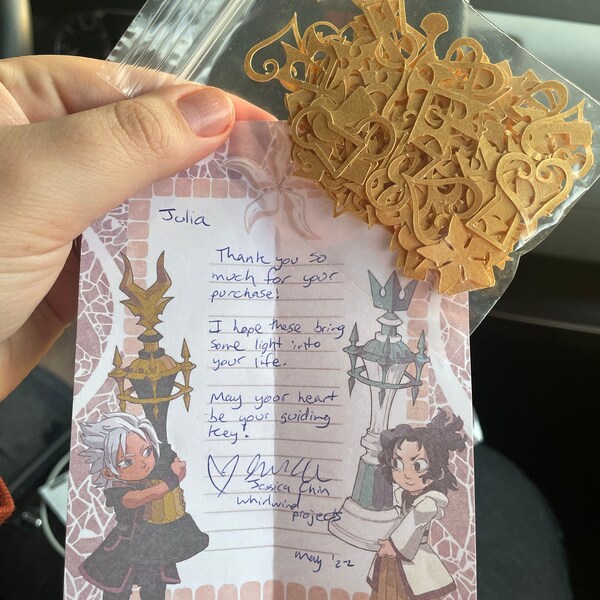 Julia
Thank you so
much for your
purchase!
I hope these bring
some light into
your life.
May your heart
be your guiding
key!
Jessica Chin
whirlwind
projects
May '22